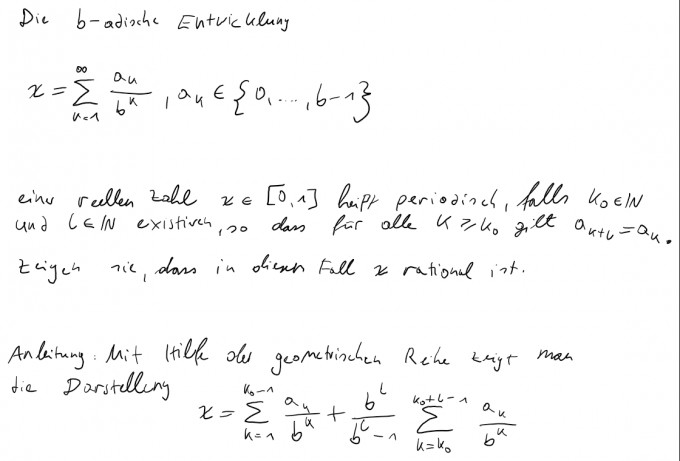 Die b-adische Entwicklung
x = ∑_{k=1}^{∞} a_k / b^k , a_k ∈ {0, ..., b-1}
einer reellen Zahl x ∈ [0,1] heißt periodisch, falls k_0 ∈ ℕ
und l ∈ ℕ existieren, so dass für alle k ≥ k_0 gilt a_{k+l} = a_k.
Zeigen sie, dass in diesem Fall x rational ist.
Anleitung: Mit Hilfe der geometrischen Reihe zeigt man
die Darstellung
x = ∑_{k=1}^{k_0-1} a_k / b^k + b^l / (b^l - 1) ∑_{k=k_0}^{k_0+l-1} a_k / b^k